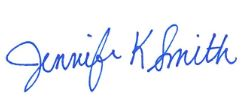 Jennifer K Smith